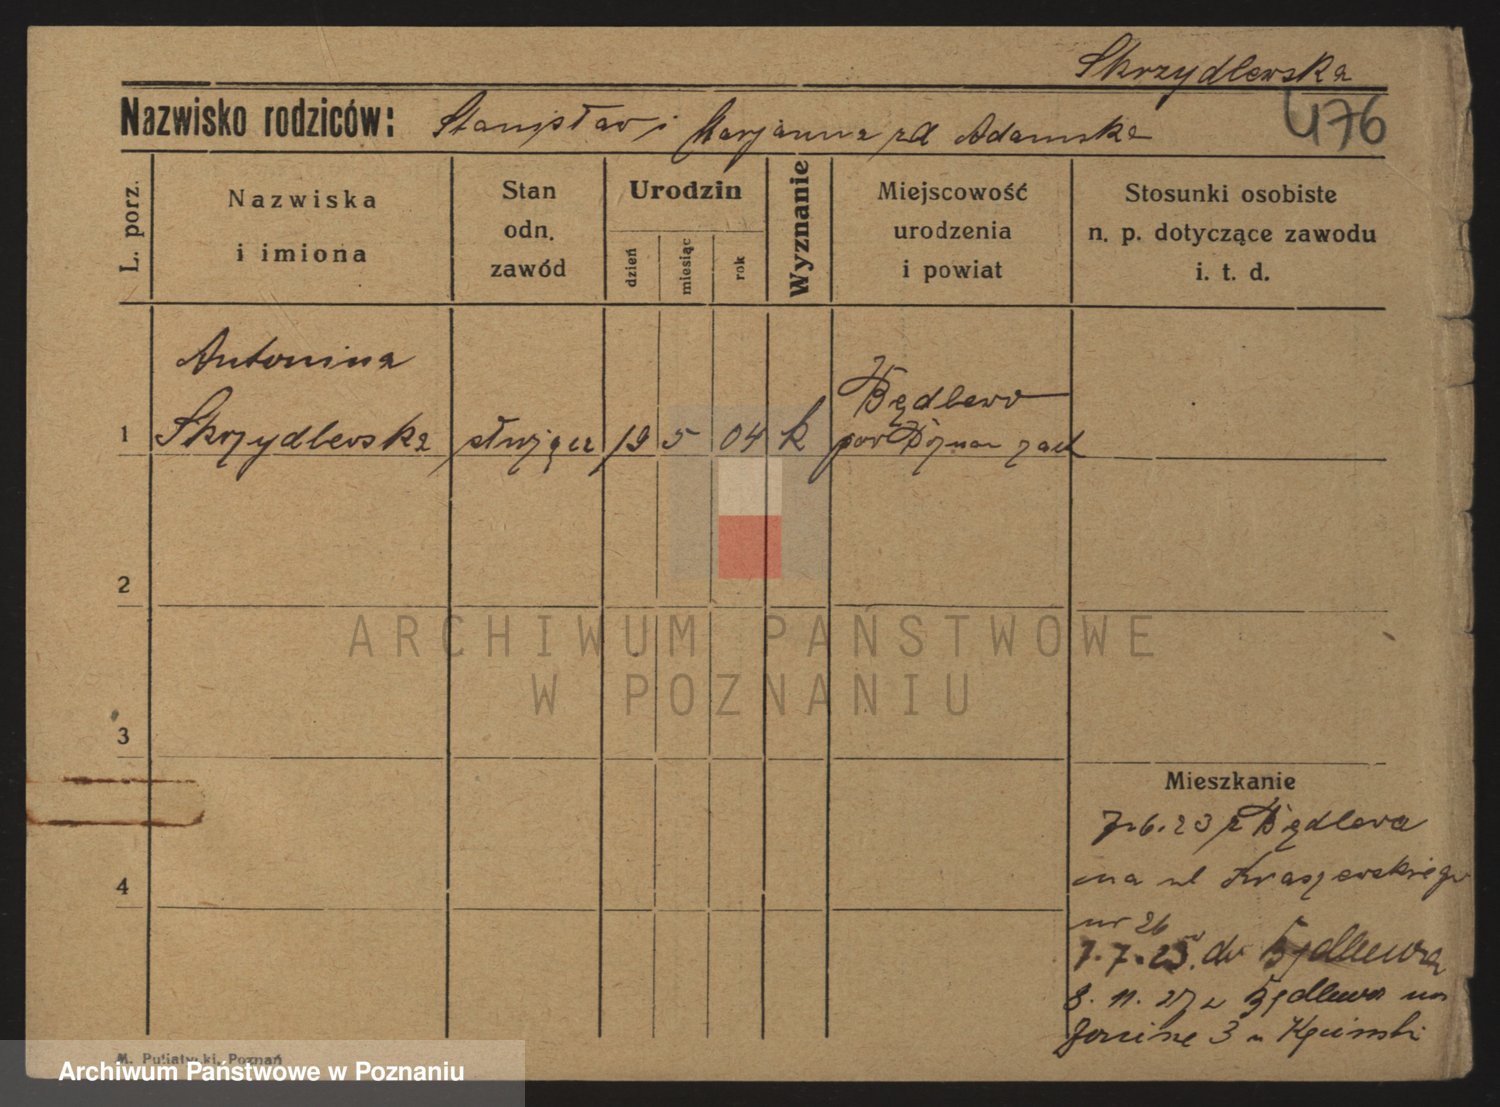 Skrzydlewska
476
Nazwisko rodziców: Stanisław i Marjanna zd Adamska
L. porz.
Nazwiska
i imiona
Stan
odn.
zawód
Urodzin
dzień
miesiąc
rok
Wyznanie
Miejscowość
urodzenia
i powiat
Stosunki osobiste
n. p. dotyczące zawodu
i. t. d.
Antonina
1 Skrzydlewska służąca 19 5 04 k Będlewo
pow Poznan zach
2
ARCHIWUM PAŃSTWOWE
W POZNANIU
3
4
Mieszkanie
7.6.23 z Będlewa
na ul Kraszewskiego
nr 26
7.7.23. do Będlewa
8.11.27 z Będlewa na
3 u
M. Putiatycki, Poznań
Archiwum Państwowe w Poznaniu